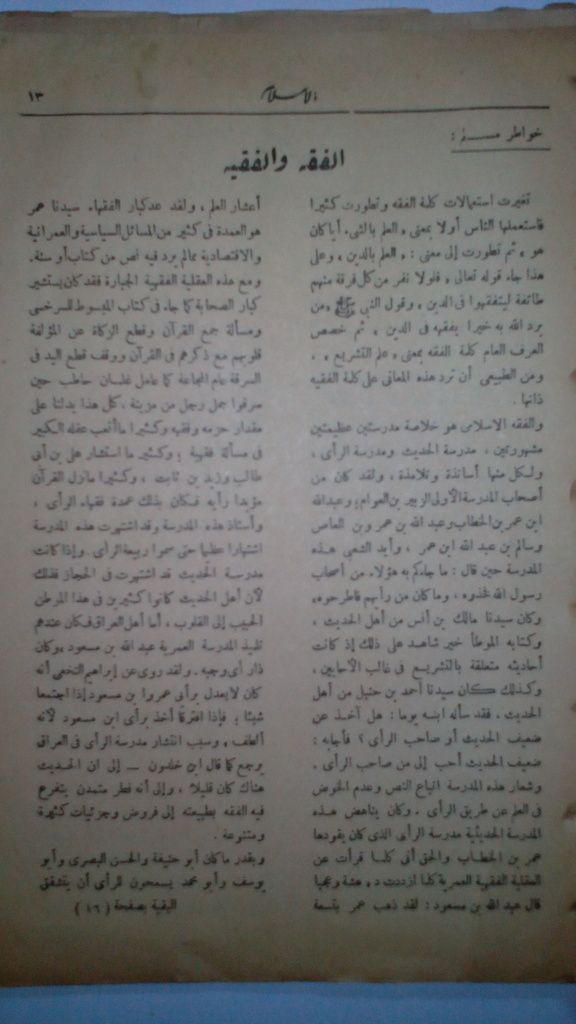 ١٣
الإسلام
خواطر مسلم :
الفقه والفقيه
تغيرت استعمالات كلمة الفقه وتطورت كثيرا
فاستعملها الناس أولا بمعنى ، العلم بالشىء. أيا كان
هو ، ثم تطورت إلى معنى : ، العلم بالدين ، وعلى
هذا جاء قوله تعالى ، فلولا نفر من كل فرقة منهم
طائفة ليتفقهوا فى الدين ، وقول النبى ﷺ ، من
يرد الله به خيرا يفقهه فى الدين ، ثم خصص
العرف العام كلمة الفقه بمعنى ، علم التشريع ، ،
ومن الطبيعى أن ترد هذه المعانى على كلمة الفقيه
ذاتها .
والفقه الاسلامى هو خلاصة مدرستين عظيمتين
مشهورتين ، مدرسة الحديث ومدرسة الرأى ،
ولكل منها أساتذة وتلامذة ، ولقد كان من
أصحاب المدرسة الأولى الزبير بن العوام ؛ وعبد الله
ابن عمر بن الخطاب وعبد الله بن عمرو بن العاص
وسالم بن عبد الله ابن عمر ، وأيد الشعبى هذه
المدرسة حين قال : ما جاءكم به هؤلاء من أصحاب
رسول الله فخذوه ، وما كان من رأيهم فاطرحوه،
وكان سيدنا مالك بن أنس من أهل الحديث ،
وكتابه الموطأ خير شاهد على ذلك إذ كانت
أحاديثه متعلقة بالتشريع فى غالب الأحايين ،
وكذلك كان سيدنا أحمد بن حنبل من أهل
الحديث ، فقد سأله ابنه يوما : هل آخذ عن
ضعيف الحديث أو صاحب الرأى ؟ فأجابه :
ضعيف الحديث أحب إلى من صاحب الرأى .
وشعار هذه المدرسة اتباع النص وعدم الخوض
فى العلم عن طريق الرأى . وكان يناهض هذه
المدرسة الحديثية مدرسة الرأى الذى كان يقودها
عمر بن الخطاب والحق أنى كلما قرأت عن
العقلية الفقهية العمرية كلما ازددت دهشة وعجبا
قال عبد الله بن مسعود : لقد ذهب عمر بتسعة
أعشار العلم ، ولقد عد كبار الفقهاء سيدنا عمر
هو العمدة فى كثير من المسائل السياسية والعمرانية
والاقتصادية بما لم يرد فيه نص من كتاب أو سنة.
ومع هذه العقلية الفقهية الجبارة فقد كان يستشير
كبار الصحابة كما جاء فى كتاب المبسوط للسرخسى
ومسألة جمع القرآن وقطع الزكاة عن المؤلفة
قلوبهم مع ذكرهم فى القرآن ووقف قطع اليد فى
السرقة عام المجاعة كما عامل غلمان حاطب حين
سرقوا جمل رجل من مزينة ،كل هذا يدلنا على
مقدار حزمه وفقهه وكثيرا ما أتعب عقله الكبير
فى مسألة فقهية ؛ وكثير ما استشار على بن أبى
طالب وزيد بن ثابت ، وكثيرا ما نزل القرآن
مؤيدا رأيه فكان بذلك عمدة فقهاء الرأى ،
وأستاذ هذه المدرسة وقد اشتهرت هذه المدرسة
اشتهارا عظيما حتى سموا ربيعة الرأى . وإذا كانت
مدرسة الحديث قد اشتهرت فى الحجاز فذلك
لأن أهل الحديث كانوا كثيرين فى هذا الموطن
الحبيب إلى القلوب ، أما أهل العراق فكان عندهم
تلميذ المدرسة العمرية عبد الله بن مسعود وكان
ذا رأى وجيه . ولقد روى عن إبراهيم النخعى أنه
كان لا يعدل برأى عمر وابن مسعود إذا اجتمعا
شيئا ؛ فإذا افترقا أخذ برأى ابن مسعود لأنه
ألطف ، وسبب انتشار مدرسة الرأى فى العراق
يرجع كما قال ابن خلدون — إلى ان الحديث
هناك كان قليلا ، وإلى أنه قطر متمدن يتفرع
فيه الفقه بطبيعته إلى فروض وجزئيات كثيرة
ومتنوعة .
وبقدر ما كان أبو حنيفة والحسن البصرى وأبو
يوسف وأبو محمد يسمحون للرأى أن يتشقق
البقية بصفحة ( ١٦ )